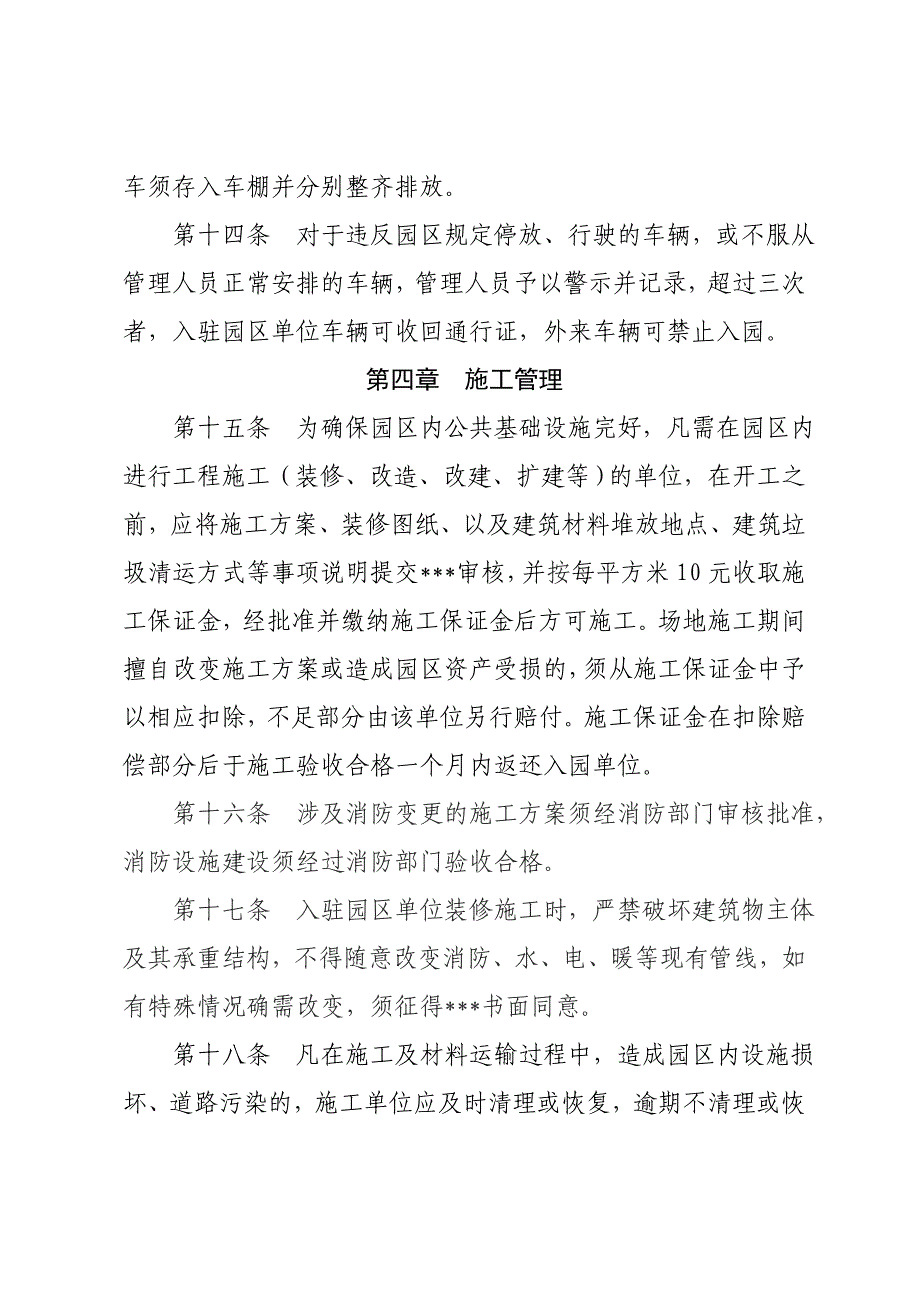 车须存入车棚并分别整齐排放。
第十四条　对于违反园区规定停放、行驶的车辆，或不服从
管理人员正常安排的车辆，管理人员予以警示并记录，超过三次
者，入驻园区单位车辆可收回通行证，外来车辆可禁止入园。
第四章　施工管理
第十五条　为确保园区内公共基础设施完好，凡需在园区内
进行工程施工（装修、改造、改建、扩建等）的单位，在开工之
前，应将施工方案、装修图纸、以及建筑材料堆放地点、建筑垃
圾清运方式等事项说明提交***审核，并按每平方米 10 元收取施
工保证金，经批准并缴纳施工保证金后方可施工。场地施工期间
擅自改变施工方案或造成园区资产受损的，须从施工保证金中予
以相应扣除，不足部分由该单位另行赔付。施工保证金在扣除赔
偿部分后于施工验收合格一个月内返还入园单位。
第十六条　涉及消防变更的施工方案须经消防部门审核批准，
消防设施建设须经过消防部门验收合格。
第十七条　入驻园区单位装修施工时，严禁破坏建筑物主体
及其承重结构，不得随意改变消防、水、电、暖等现有管线，如
有特殊情况确需改变，须征得***书面同意。
第十八条　凡在施工及材料运输过程中，造成园区内设施损
坏、道路污染的，施工单位应及时清理或恢复，逾期不清理或恢